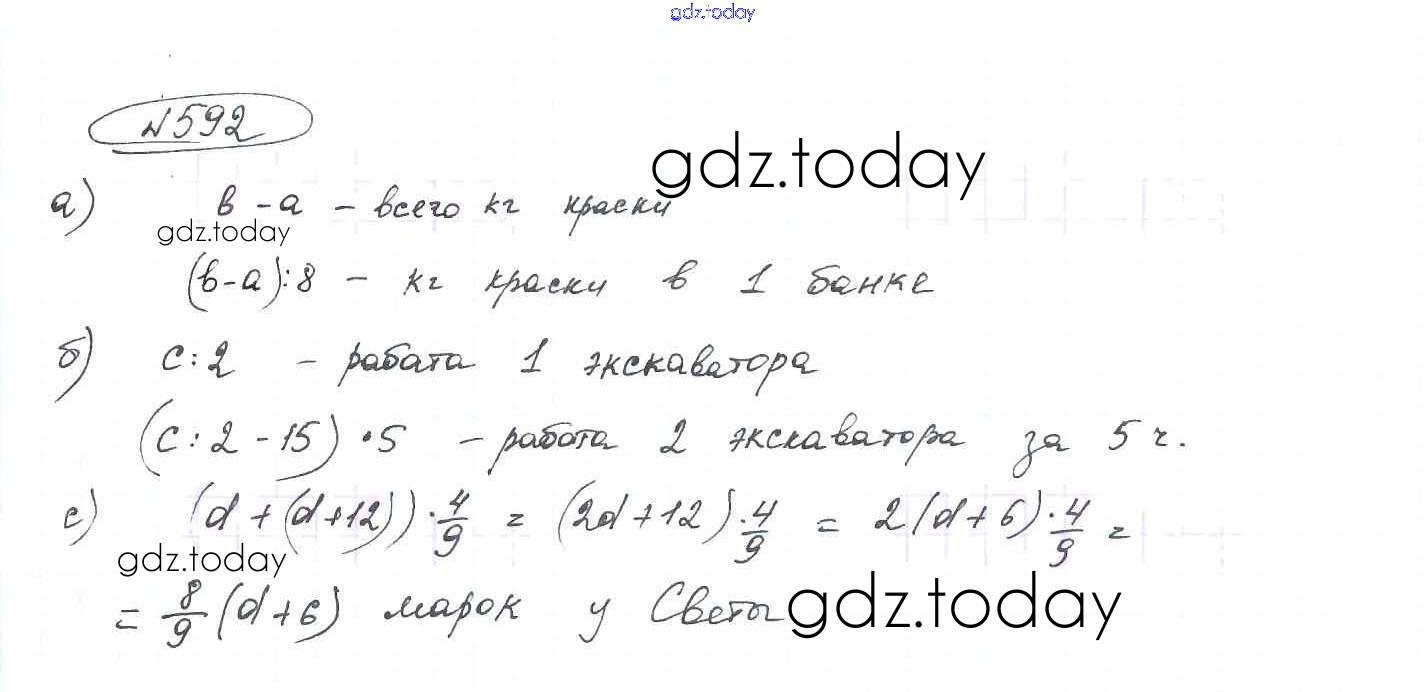 gdz.today
№592
gdz.today
а) в - а - всего кг краски
gdz.today
(в-а):8 - кг краски в 1 банке
б) с:2 - работа 1 экскаватора
(с:2 - 15)·5 - работа 2 экскаватора за 5 ч.
с) (d + (d+12))·4/9 = (2d+12)·4/9 = 2(d+6)·4/9 =
gdz.today
= 8/9 (d+6) марок у Светы
gdz.today